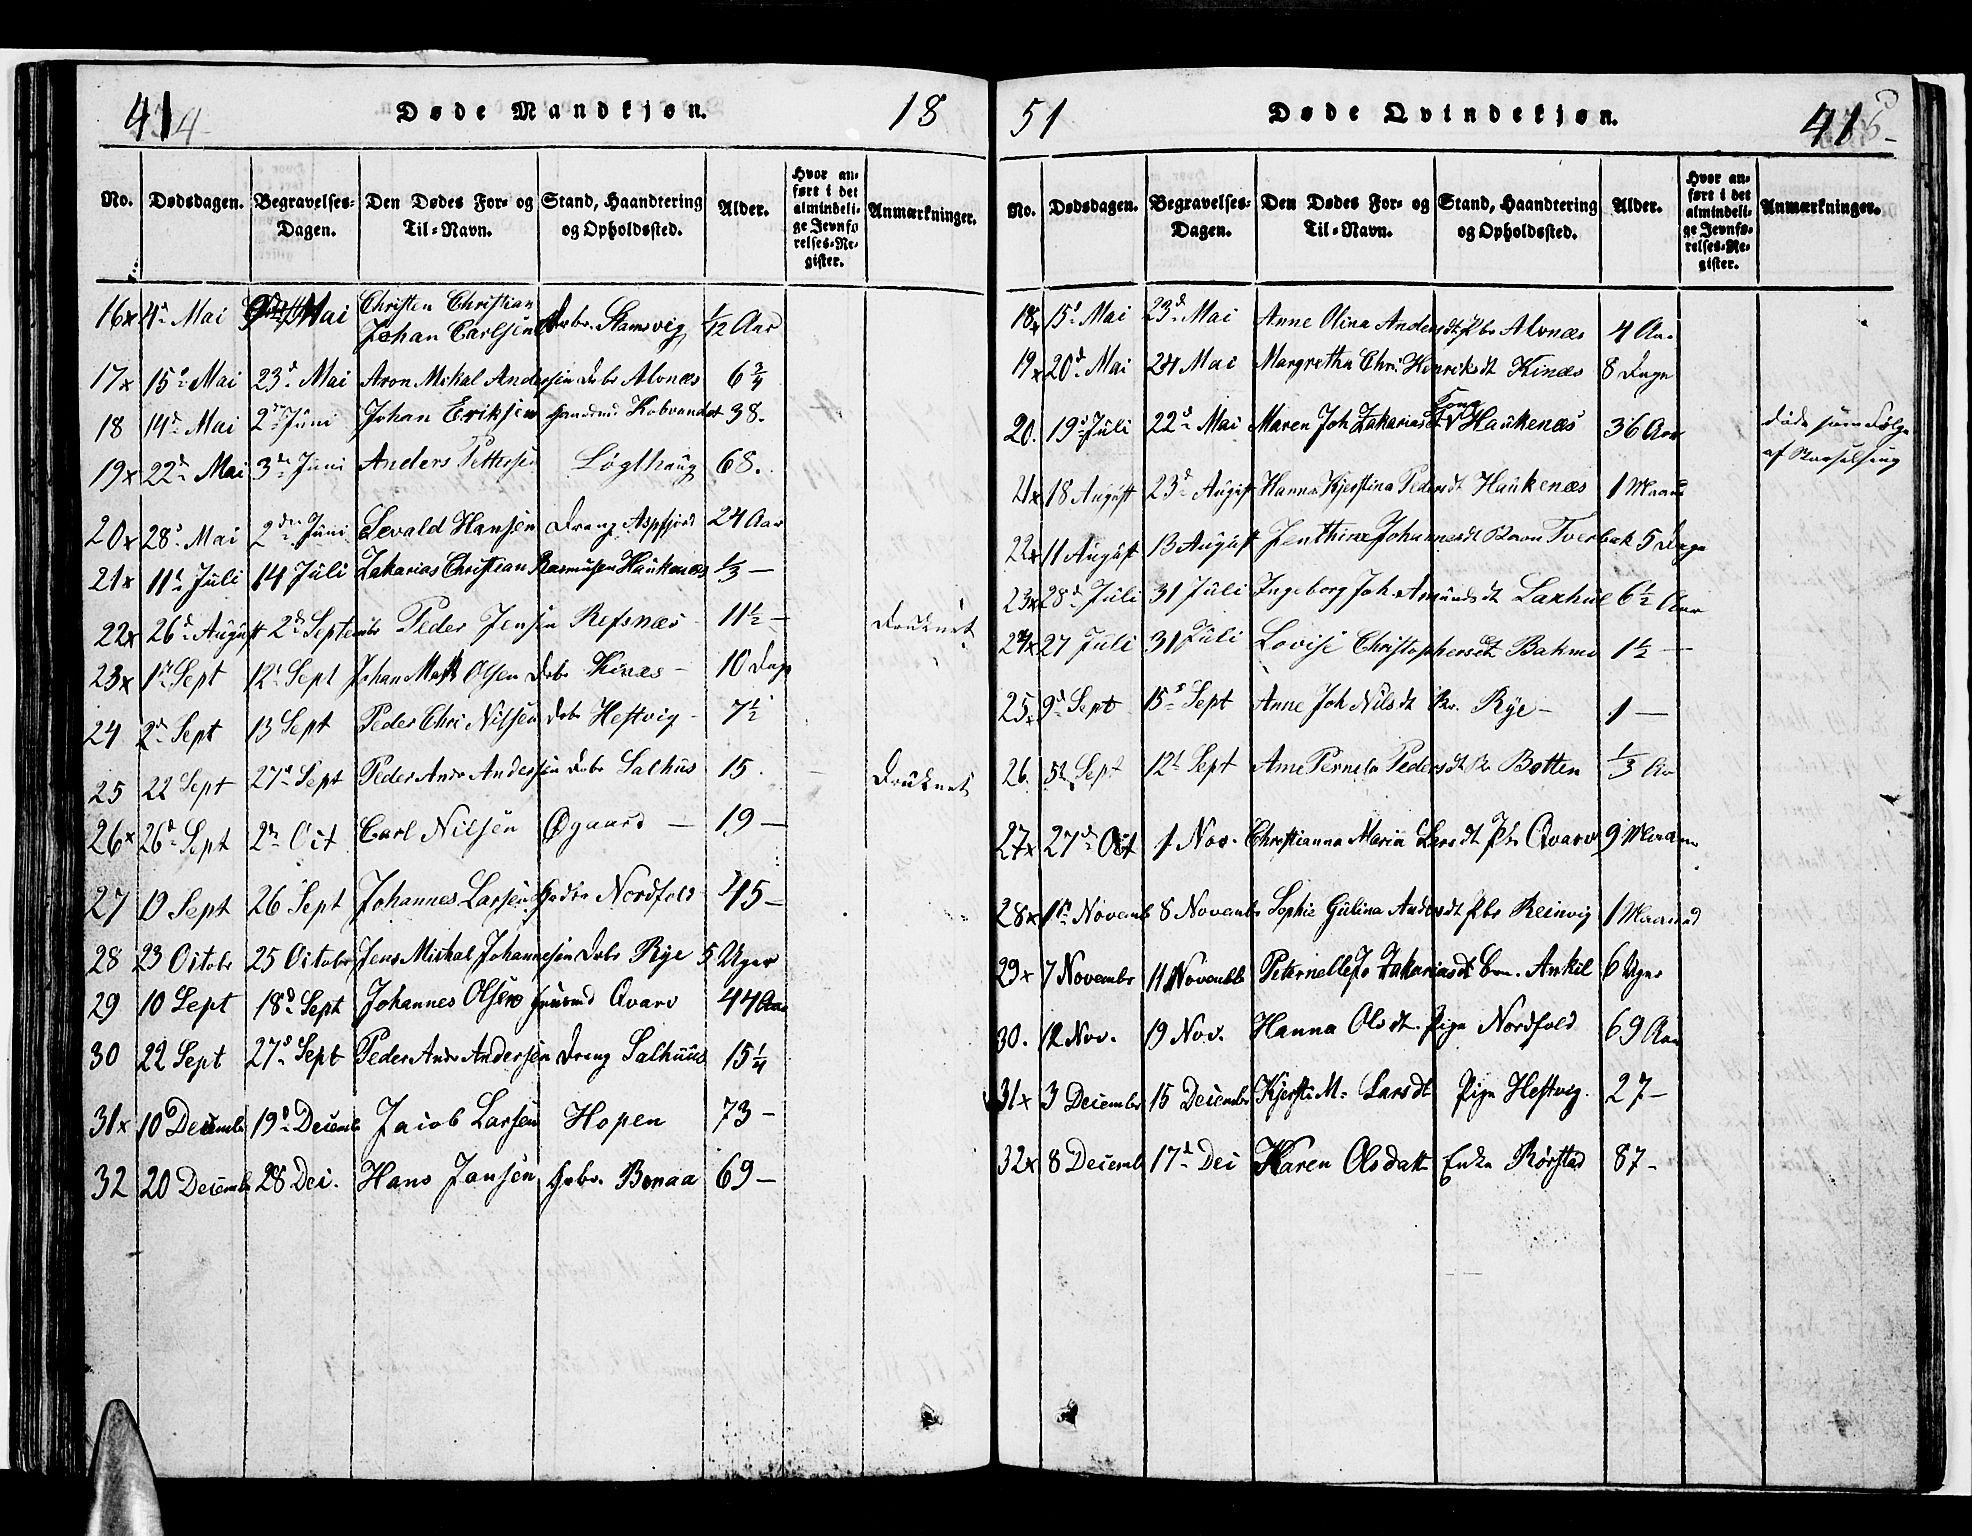 414
Døde Mandkjøn.
18
No. Dødsdagen. Begravelses-Dagen. Den Dødes For- og Til-Navn. Stand, Haandtering og Opholdssted. Alder. Hvor anført i det almindelige Jevnførelses-Register. Anmærkninger.
16x 4de Mai Mai Christen Christian
Johan Carlsen Stamsvig 1/12 Aar
17x 15de Mai 23d Mai Aron Mikal Andersen Drbr Alvnæs 6 3/4
18 14de Mai 2den Juni Johan Eriksen Huusmd Kobvandet 38.
19x 22de Mai 3die Juni Anders Pettersen Løgthaug 68.
20x 28de Mai 2den Juni Sevald Hansen Dreng Aspfjord 24 Aar
21x 11te Juli 14 Juli Zakarias Christian Rasmusen Haukenæs 1/3 —
22x 26de August 2de Septembr Peder Jensen Refsnæs 11 1/2 — Druknet
23x 1ste Sept 12te Sept Johan Olsen Drbr Kinæs — 10 Dage
24 2de Sept 13 Sept Peder Chri Nilsen Drbr Hestvig — 7 1/2
25 22 Sept 27de Sept Peder Andr Andersen Drbr Salhus 15. Druknet
26x 26de Sept 2den Oct Carl Nilsen Øgaard — 19 —
27 19 Sept 26 Sept Johannes Larsen Nordfold 45 —
28 23 Octobr 25 Octobr Jens Mickal Johannesen Drbr Rye 5 Uger
29 10 Sept 18de Sept Johannes Olsen Huusmd Qvarv 44 Aar
30 22 Sept 27de Sept Peder Andr Andersen Dreng Salhuus 15 1/4
31x 10 Decembr 19de Decembr Jacob Larsen Hopen 73 —
32 20 Decembr 28 Dec. Hans Jansen Gbr. Bonaa 69 —
51
Døde Qvindekjøn.
415
No. Dødsdagen. Begravelses-Dagen. Den Dødes For- og Til-Navn. Stand, Haandtering og Opholdssted. Alder. Hvor anført i det almindelige Jevnførelses-Register. Anmærkninger.
18x 15de Mai 23de Mai Anne Olina Andersdt Pbr Alvnæs 4 Aar
19x 20de Mai 24 Mai Margretha Chri. Henriksdt Kinæs 8 Dage
20. 19de Juli 22de Mai Maren Joh Zakariasdt Kone Haukenæs 36 Aar døde som Følge
af Barselseng
21x 18 August 23de August Hanna Kjerstina Pedersdt Haukenæs 1 Maaned
22x 11 August 13 August Jenthine Johannesdt Barn Tverbak 5 Dage
23x 28de Juli 31 Juli Ingeborg Joh Amundsdt Laxhul 6 1/2 Aar
24x 27 Juli 31 Juli Lovise Christophersdt Bakmo 1 1/2 —
25x 9de Sept 15de Sept Anne Joh Nilsdt Br. Rye — 1 —
26. 5te Sept 12te Sept Ane Pernela Pedersdt Br Botten 1/3 Aar
27x 27de Oct 1 Nov. Christianna Maria Larsdt Pbr Qvarv 9 Maaneder
28x 1ste Novembr 8 Novembr Sophie Gulina Andersdt Pbr Reinvig 1 Maaned
29x 7 Novembr 11 Novembr Peternelle Jo Zakariasdt Ankil 6 Uger
30. 12 Nov. 19 Nov. Hanna Olsdt. Pige Nordfold 69 Aar
31x 3 Decembr 15 Decembr Kjersti M. Larsdt Pige Hestvig. 27 —
32x 8 Decembr 17de Dec Karen Olsdatt Enke Rørstad 87 —